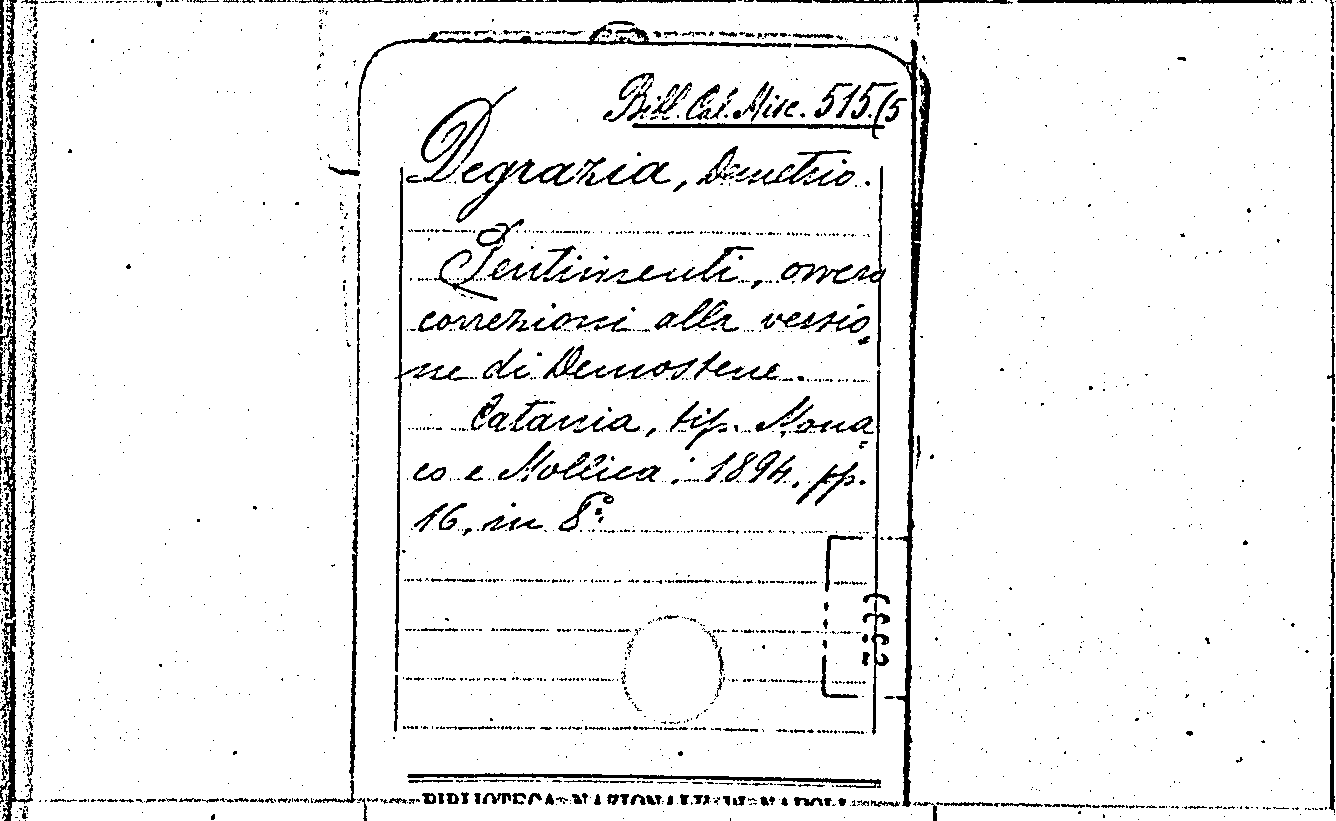 Bibl. Cal. Misc. 515.(5
Degrazia, Demetrio.
Pentimenti, ovvero
correzioni alla versio=
ne di Demostene.
Catania, tip. Mona=
co e Mollica. 1894. pp.
16, in 8°.
BIBLIOTECA NAZIONALE DI NAPOLI